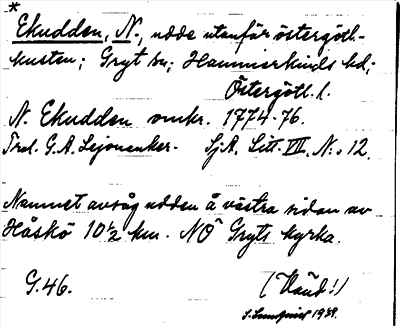 *
Ekudden, N., udde utanför östergötl.-
kusten; Gryt sn; Hammarkinds hd;
Östergötl. l.
N. Ekudden omkr. 1774-76.
Trol. G.A. Lejonanker. Sj.A. Litt. VII. N:o 12.
Namnet avsåg udden å västra sidan av
Håskö 10 1/2 km. NÖ Gryts kyrka.
G. 46. (Känd!)
1939.